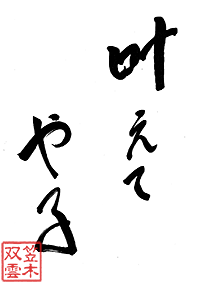 叶えて
や子
笠木
双雲